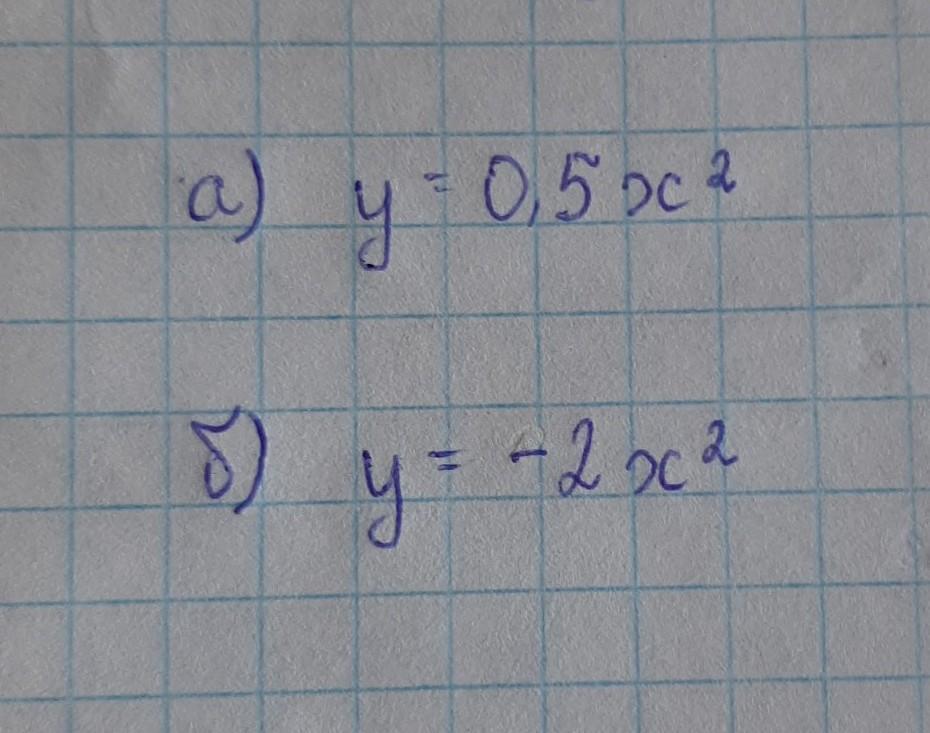 а) y = 0,5x²
б) y = -2x²